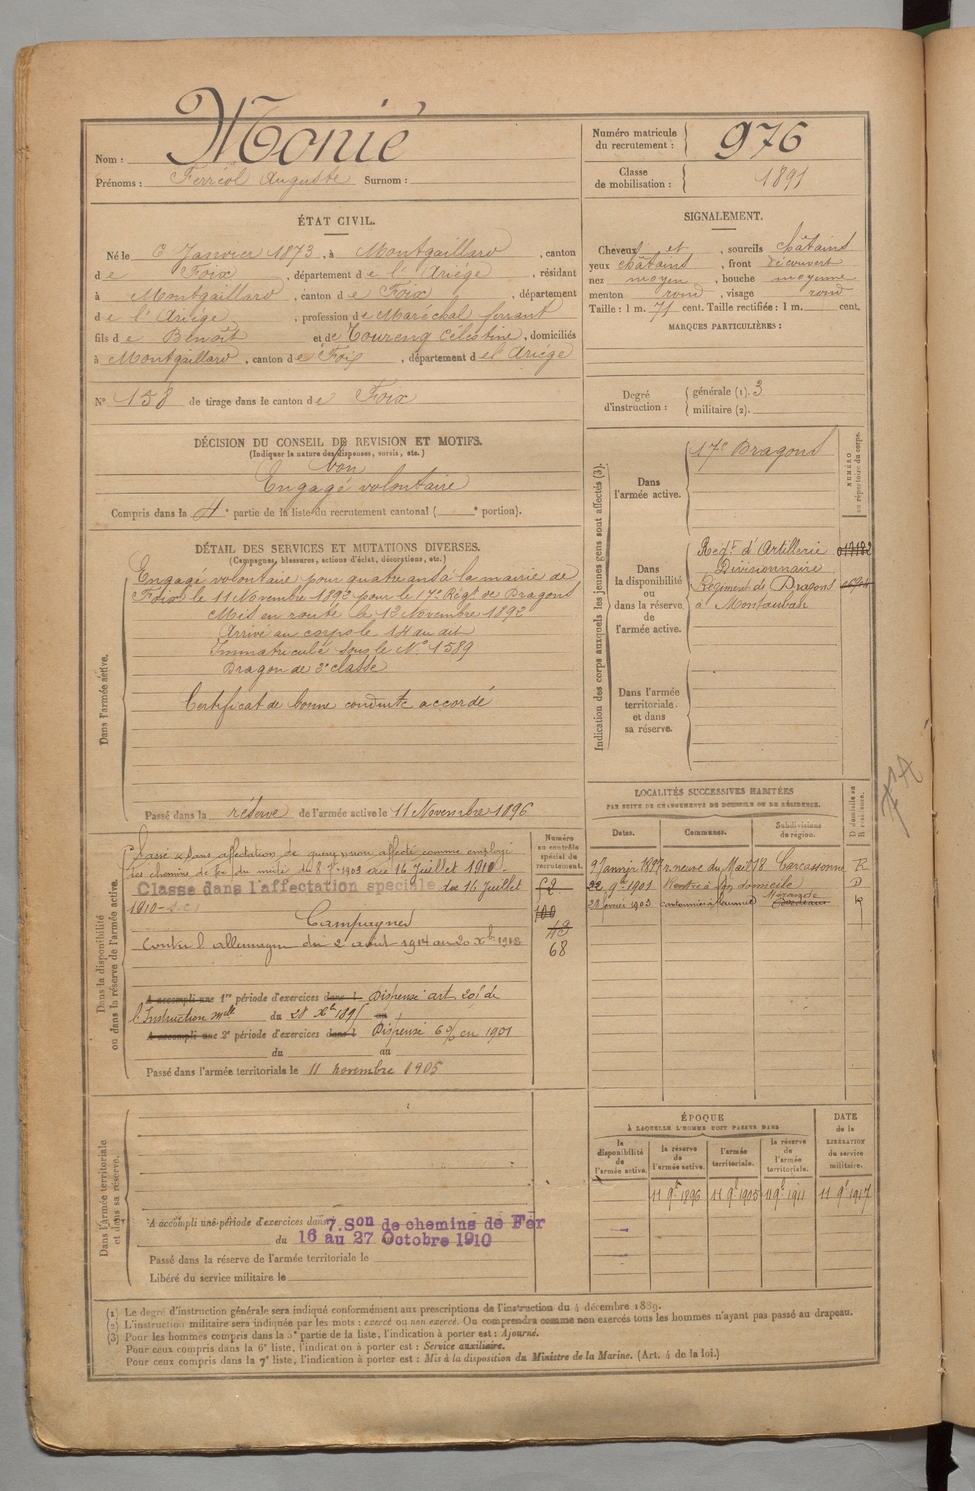 Nom : Monié
Prénoms : Ferréol Auguste Surnom :
Numéro matricule du recrutement : 976
Classe de mobilisation : 1891
ÉTAT CIVIL.
Né le 6 Janvier 1873, à Montgaillard, canton
de Foix, département de l'Ariége, résidant
à Montgaillard, canton de Foix, département
de l'Ariége, profession de Maréchal ferrant
fils de Benoît et de Toureng Célestine, domiciliés
à Montgaillard, canton de Foix, département de l'Ariége
N° 158 de tirage dans le canton de Foix
SIGNALEMENT.
Cheveux et, sourcils châtains
yeux châtains, front découvert
nez moyen, bouche moyenne
menton rond, visage rond
Taille : 1 m. 71 cent. Taille rectifiée : 1 m. cent.
MARQUES PARTICULIÈRES :
Degré d'instruction : générale (1). 3
militaire (2).
DÉCISION DU CONSEIL DE REVISION ET MOTIFS.
(Indiquer la nature des dispenses, sursis, etc.)
bon
Engagé volontaire
Compris dans la 4e partie de la liste du recrutement cantonal ( e portion).
DÉTAIL DES SERVICES ET MUTATIONS DIVERSES.
(Campagnes, blessures, actions d'éclat, décorations, etc.)
Dans l'armée active.
Engagé volontaire pour quatre ans à la mairie de
Foix le 11 Novembre 1892 pour le 17e Régt de Dragons
Mis en route le 12 Novembre 1892
Arrivé au corps le 14 du dit
Immatriculé sous le N° 1589
Dragon de 2e classe
Certificat de bonne conduite accordé
Passé dans la réserve de l'armée active le 11 Novembre 1896
Indication des corps auxquels les jeunes gens sont affectés (3).
NUMÉRO au répertoire du corps.
Dans l'armée active.
17e Dragons
Dans la disponibilité ou dans la réserve de l'armée active.
Régt d'Artillerie
Divisionnaire
Régiment de Dragons
à Montauban
Dans l'armée territoriale et dans sa réserve.
LOCALITÉS SUCCESSIVES HABITÉES
PAR SUITE DE CHANGEMENTS DE DOMICILE OU DE RÉSIDENCE.
Dates. Communes. Subdivisions de région. D domicile ou R résidence.
Carcassonne R
22 9bre 1901 Rentre à son domicile D
23 février 1903 R
Dans la disponibilité ou dans la réserve de l'armée active.
Numéro au contrôle spécial du recrutement.
des chemins de fer du midi du 8 1903 au 16 Juillet 1910
Classe dans l'affectation speciale du 16 Juillet
1910
Campagnes
Contre l'allemagne du 2 aout 1914 au 20 Xbre 1918
62
100
49
68
A accompli une 1re période d'exercices dans l Dispensé art. 201 de
l'Instruction melle du 28 Xbre 1895 au
A accompli une 2e période d'exercices dans l Dispensé 6% en 1901
du au
Passé dans l'armée territoriale le 11 novembre 1905
ÉPOQUE
À LAQUELLE L'HOMME DOIT PASSER DANS
la disponibilité de l'armée active.
la réserve de l'armée active.
l'armée territoriale.
la réserve de l'armée territoriale.
DATE de la LIBÉRATION du service militaire.
11 9bre 1896 11 9bre 1905 11 9bre 1911 11 9bre 1917
Dans l'armée territoriale et dans sa réserve.
A accompli une période d'exercices dans 7.Son de chemins de Fer
du 16 au 27 Octobre 1910
Passé dans la réserve de l'armée territoriale le
Libéré du service militaire le
(1) Le degré d'instruction générale sera indiqué conformément aux prescriptions de l'instruction du 4 décembre 1889.
(2) L'instruction militaire sera indiquée par les mots : exercé ou non exercé. On comprendra comme non exercés tous les hommes n'ayant pas passé au drapeau.
(3) Pour les hommes compris dans la 5e partie de la liste, l'indication à porter est : Ajourné.
Pour ceux compris dans la 6e liste, l'indication à porter est : Service auxiliaire.
Pour ceux compris dans la 7e liste, l'indication à porter est : Mis à la disposition du Ministre de la Marine. (Art. 4 de la loi.)